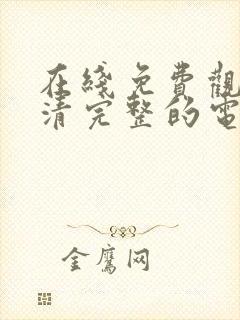 在綫免費觀
清完整的電
金鷹网